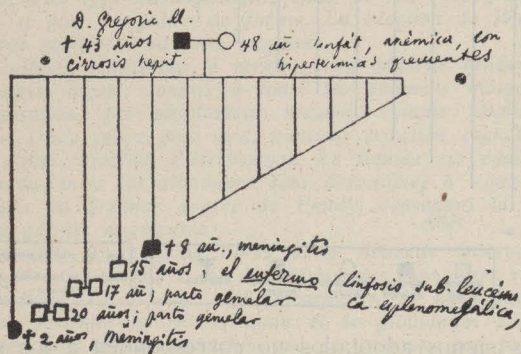 D. Gregorio M.
† 43 años
cirrosis hepát.
48 añ linfát, anémica, con
hipertermias frecuentes
† 8 añ., meningitis
15 años; el enfermo (linfosis sub-leucémi
ca esplenomegálica,
17 añ; parto gemelar
20 años; parto gemelar
† 2 años, meningitis